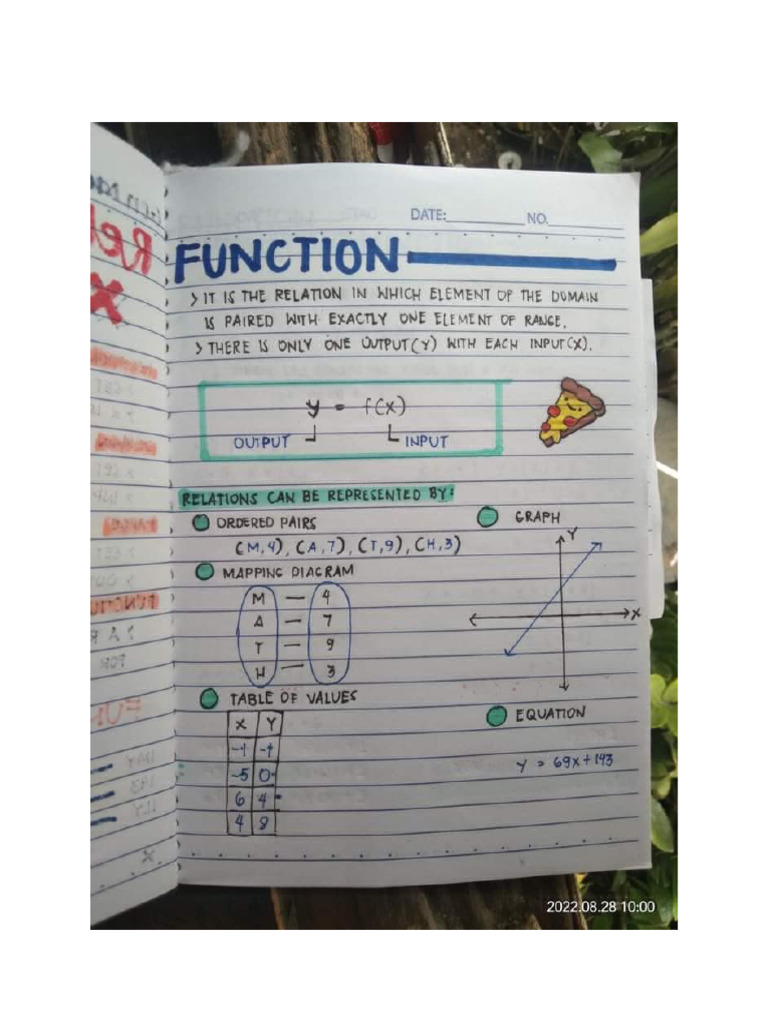 DATE:__________ NO.__________
FUNCTION
> IT IS THE RELATION IN WHICH ELEMENT OF THE DOMAIN
IS PAIRED WITH EXACTLY ONE ELEMENT OF RANGE.
> THERE IS ONLY ONE OUTPUT(Y) WITH EACH INPUT(X).
y = f(x)
OUTPUT INPUT
RELATIONS CAN BE REPRESENTED BY:
ORDERED PAIRS
(M,4), (A,7), (T,9), (H,3)
MAPPING DIAGRAM
M — 4
A — 7
T — 9
H — 3
TABLE OF VALUES
X Y
-1 -1
-5 0
6 4
4 8
GRAPH
Y
X
EQUATION
Y = 69X + 143
2022.08.28 10:00